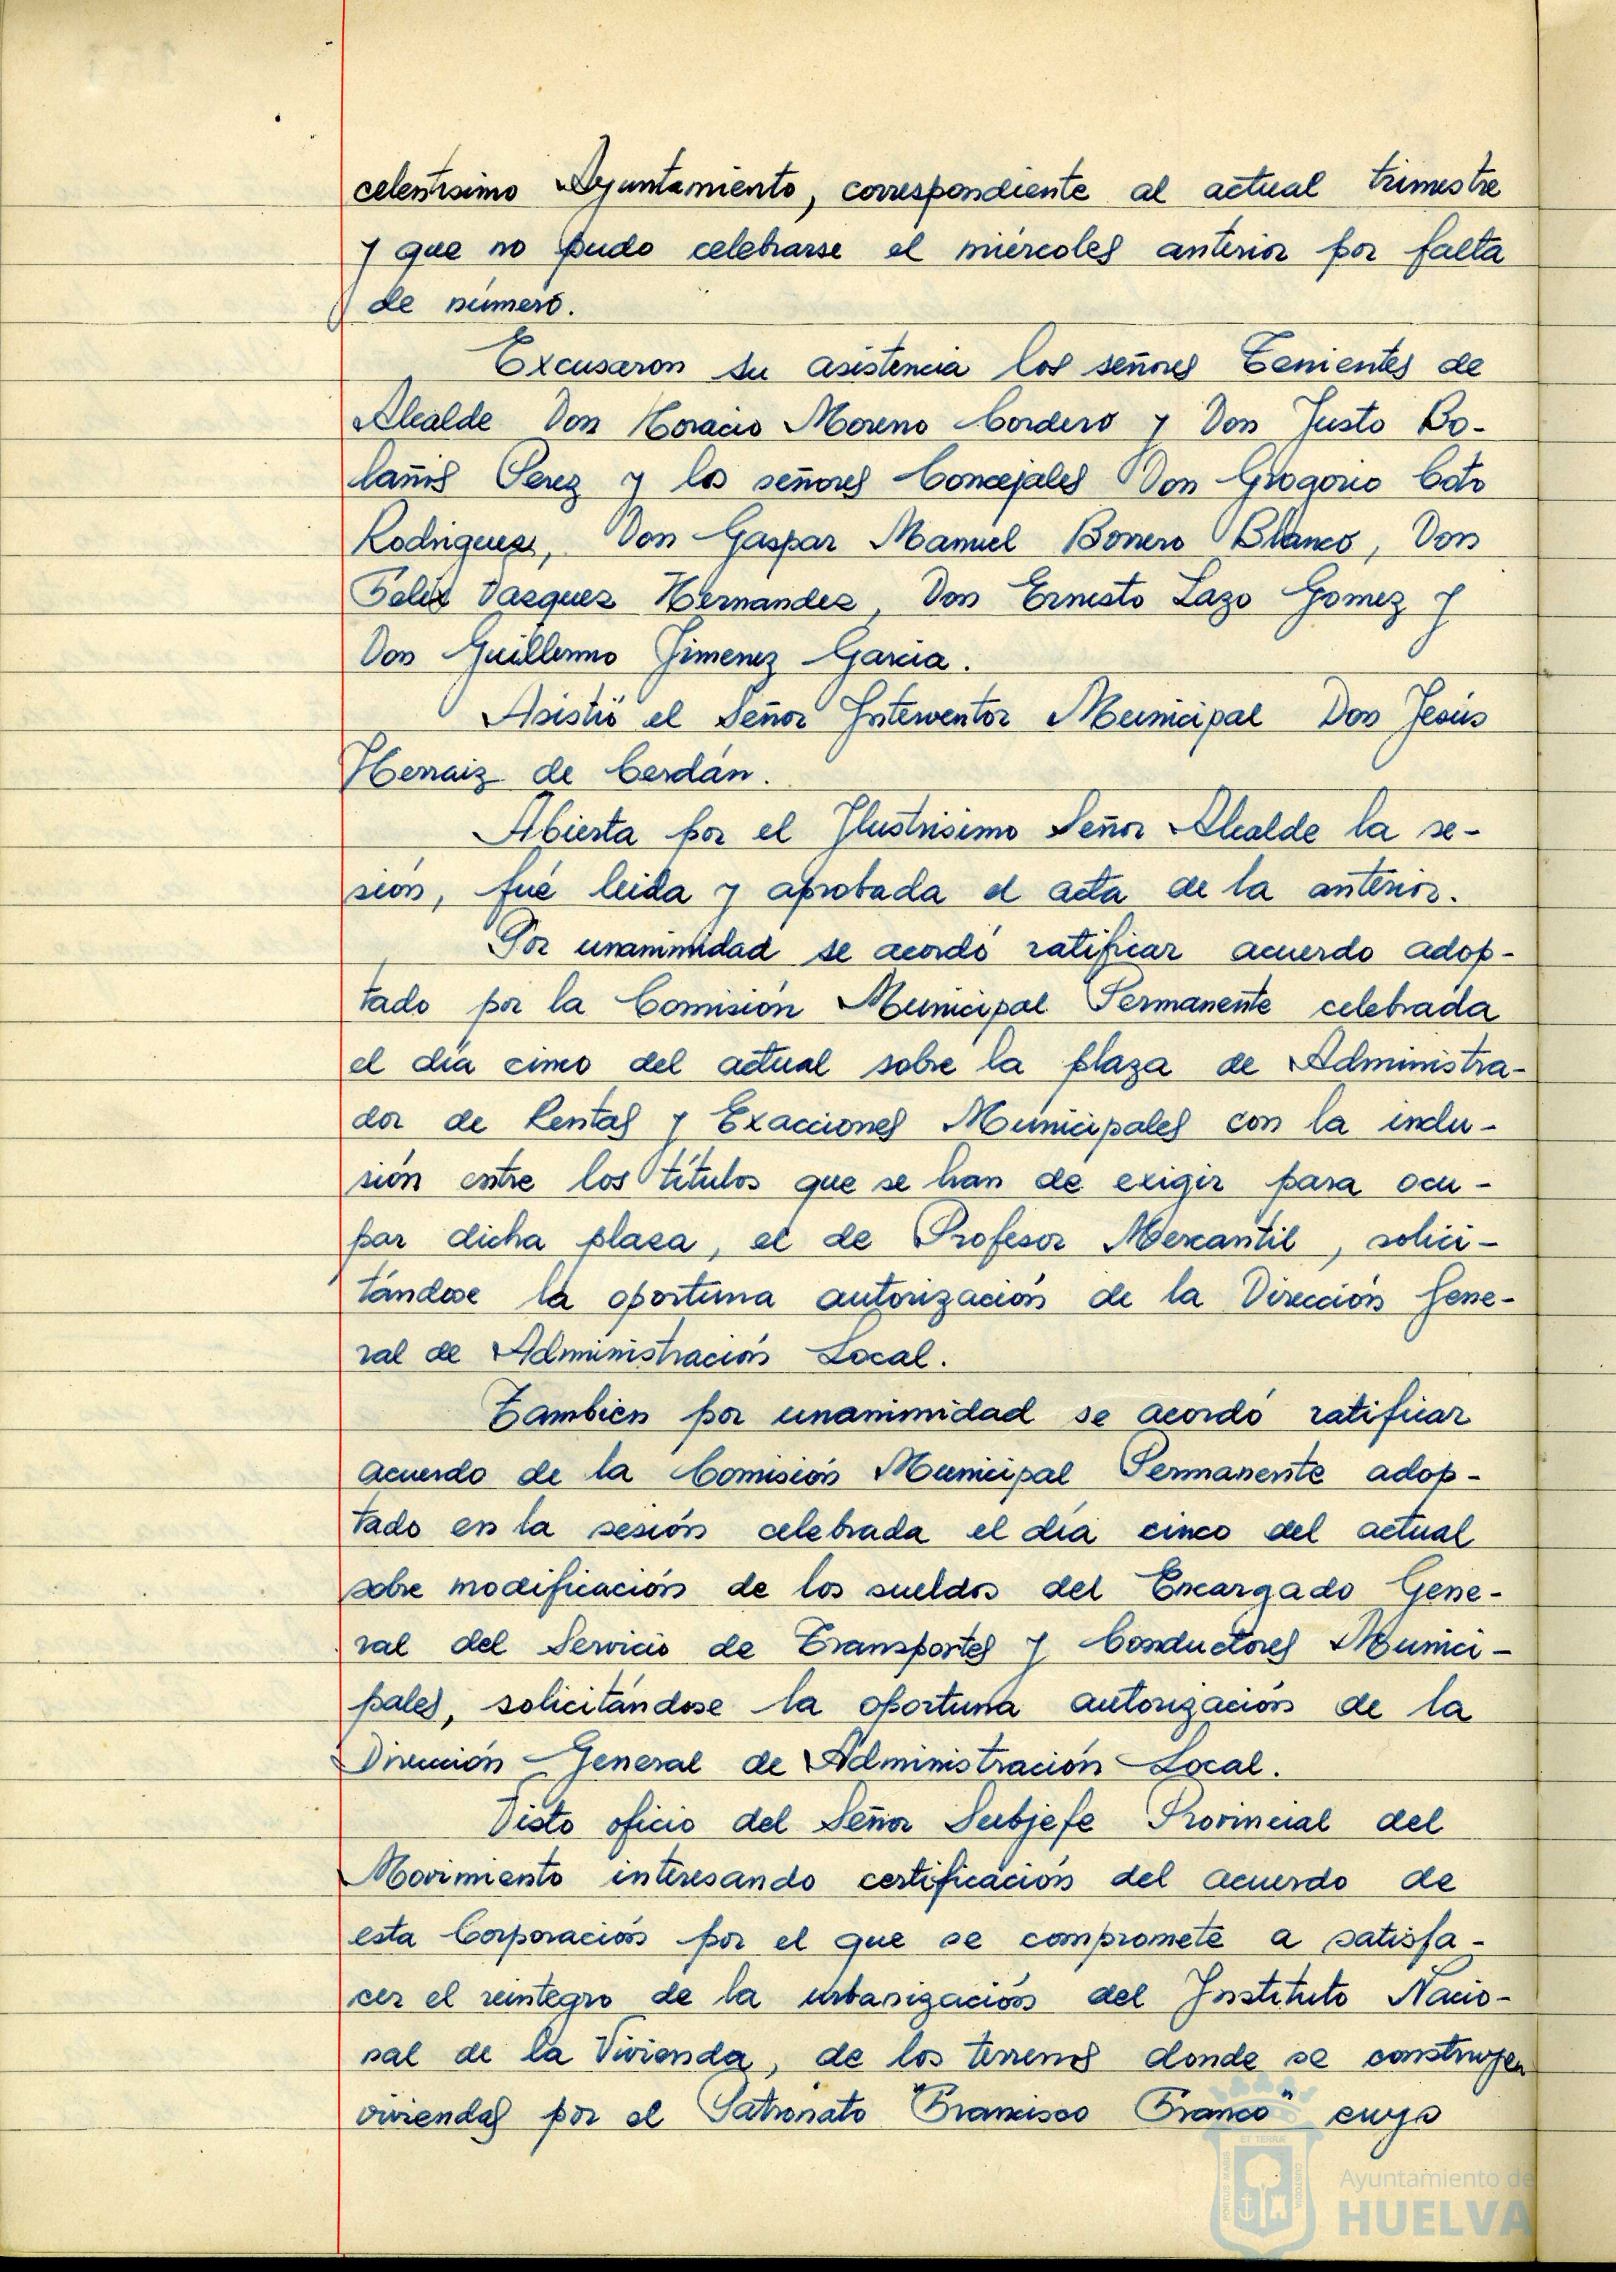 celentísimo Ayuntamiento, correspondiente al actual trimestre
y que no pudo celebrarse el miércoles anterior por falta
de número.
Excusaron su asistencia los señores Tenientes de
Alcalde Don Horacio Moreno Cordero y Don Justo Bo-
laños Perez y los señores Concejales Don Grogorio Coto
Rodriguez, Don Gaspar Manuel Borrero Blanco, Don
Felix Vazquez Hernandez, Don Ernesto Lazo Gomez y
Don Guillermo Jimenez Garcia.
Asistió el Señor Interventor Municipal Don Jesús
Herraiz de Cerdán.
Abierta por el Ilustrisimo Señor Alcalde la se-
sión, fué leida y aprobada el acta de la anterior.
Por unanimidad se acordó ratificar acuerdo adop-
tado por la Comisión Municipal Permanente celebrada
el día cinco del actual sobre la plaza de Administra-
dor de Rentas y Exacciones Municipales con la inclu-
sión entre los títulos que se han de exigir para ocu-
par dicha plaza, el de Profesor Mercantil, solici-
tándose la oportuna autorización de la Dirección Gene-
ral de Administración Local.
Tambien por unanimidad se acordó ratificar
acuerdo de la Comisión Municipal Permanente adop-
tado en la sesión celebrada el día cinco del actual
sobre modificación de los sueldos del Encargado Gene-
ral del Servicio de Transportes y Conductores Munici-
pales, solicitándose la oportuna autorización de la
Dirección General de Administración Local.
Visto oficio del Señor Subjefe Provincial del
Movimiento interesando certificación del acuerdo de
esta Corporación por el que se compromete a satisfa-
cer el reintegro de la urbanización del Instituto Nacio-
nal de la Vivienda, de los terrenos donde se construyen
viviendas por el Patronato "Francisco Franco" cuyo
ET TERRÆ
PORTUS MARIS
CUSTODIA
Ayuntamiento de
HUELVA